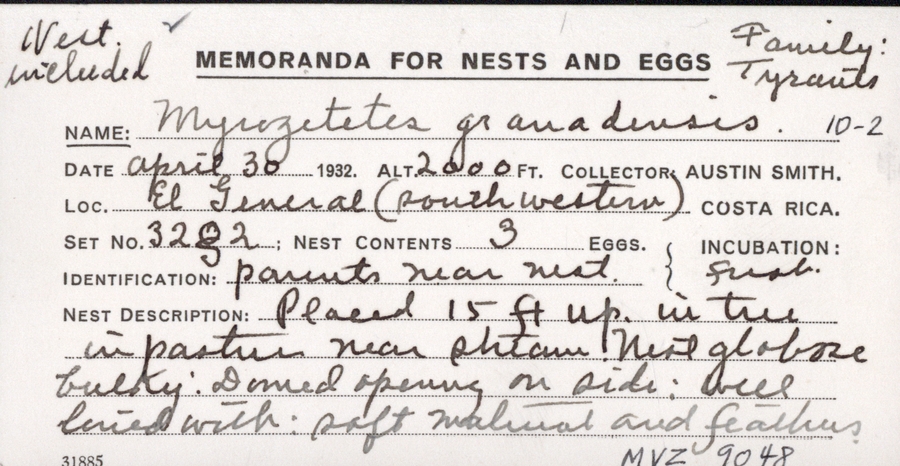 Nest included
Family: Tyrants
MEMORANDA FOR NESTS AND EGGS
NAME: Myiozetetes granadensis. 10-2
DATE april 30 1932. ALT. 2000 FT. COLLECTOR: AUSTIN SMITH.
LOC. El General (southwestern) COSTA RICA.
SET NO. 3292; NEST CONTENTS 3 EGGS. INCUBATION:
IDENTIFICATION: parents near nest. fresh.
NEST DESCRIPTION: Placed 15 ft up. in tree
in pasture near stream. Nest globose
bulky. Domed opening on side: well
lined with: soft material and feathers
31885 MVZ 9048